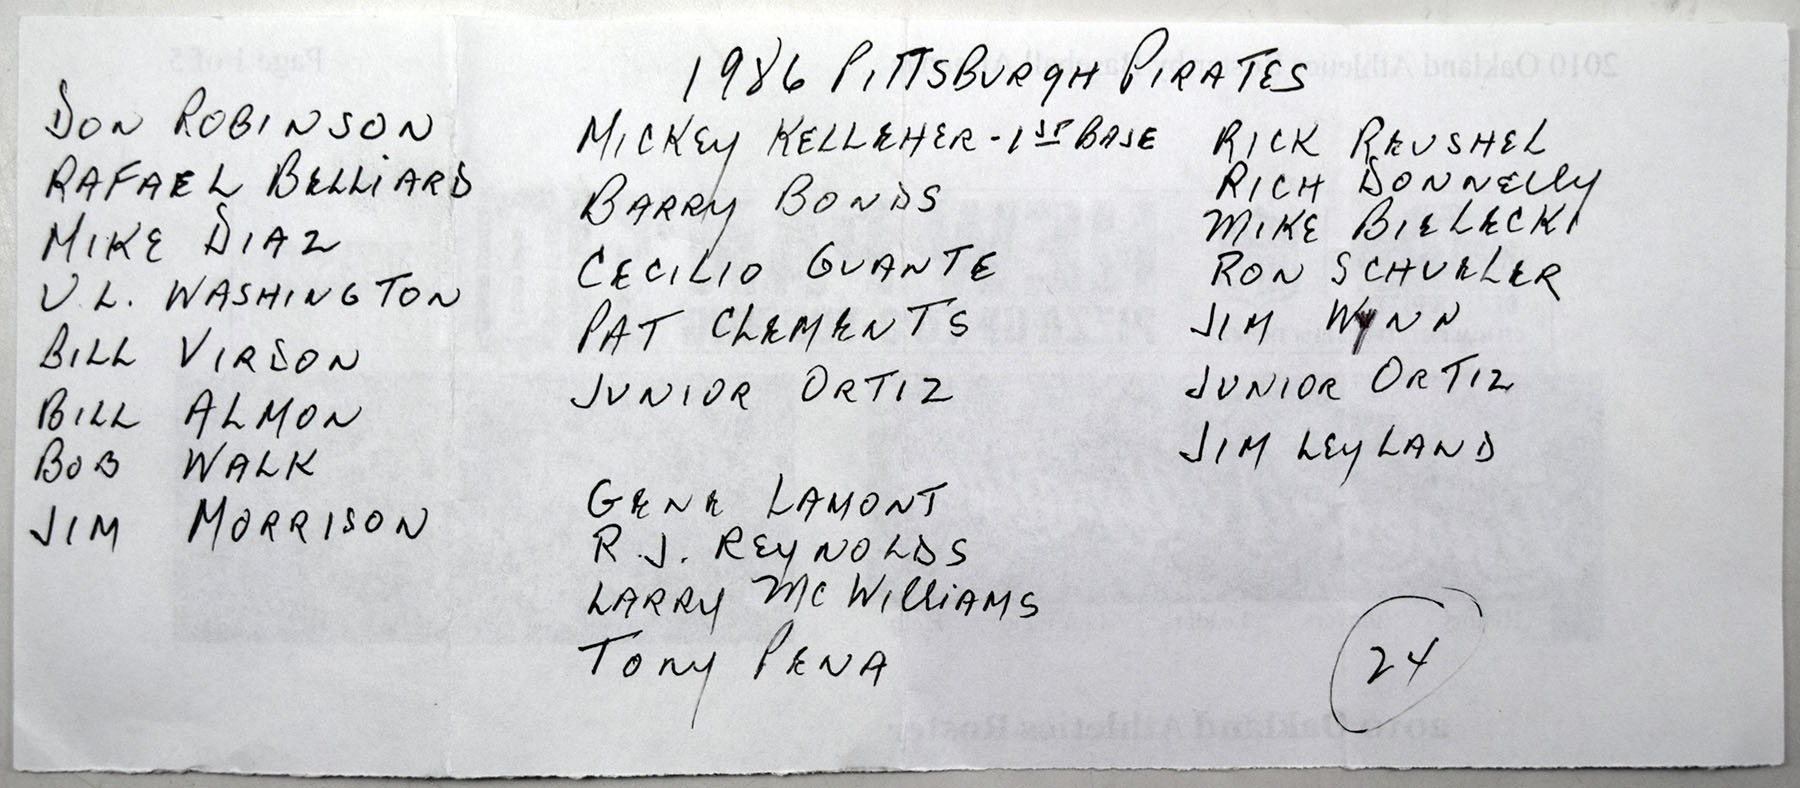 1986 PITTSBURGH PIRATES
DON ROBINSON
RAFAEL BELLIARD
MIKE DIAZ
U.L. WASHINGTON
BILL VIRDON
BILL ALMON
BOB WALK
JIM MORRISON
MICKEY KELLEHER - 1ST BASE
BARRY BONDS
CECILIO GUANTE
PAT CLEMENTS
JUNIOR ORTIZ
GENE LAMONT
R.J. REYNOLDS
LARRY MCWILLIAMS
TONY PENA
RICK REUSHEL
RICH DONNELLY
MIKE BIELECKI
RON SCHUELER
JIM WYNN
JUNIOR ORTIZ
JIM LEYLAND
24
2010 Oakland Athletics
Page 1 of 5
2010 Oakland Athletics Roster